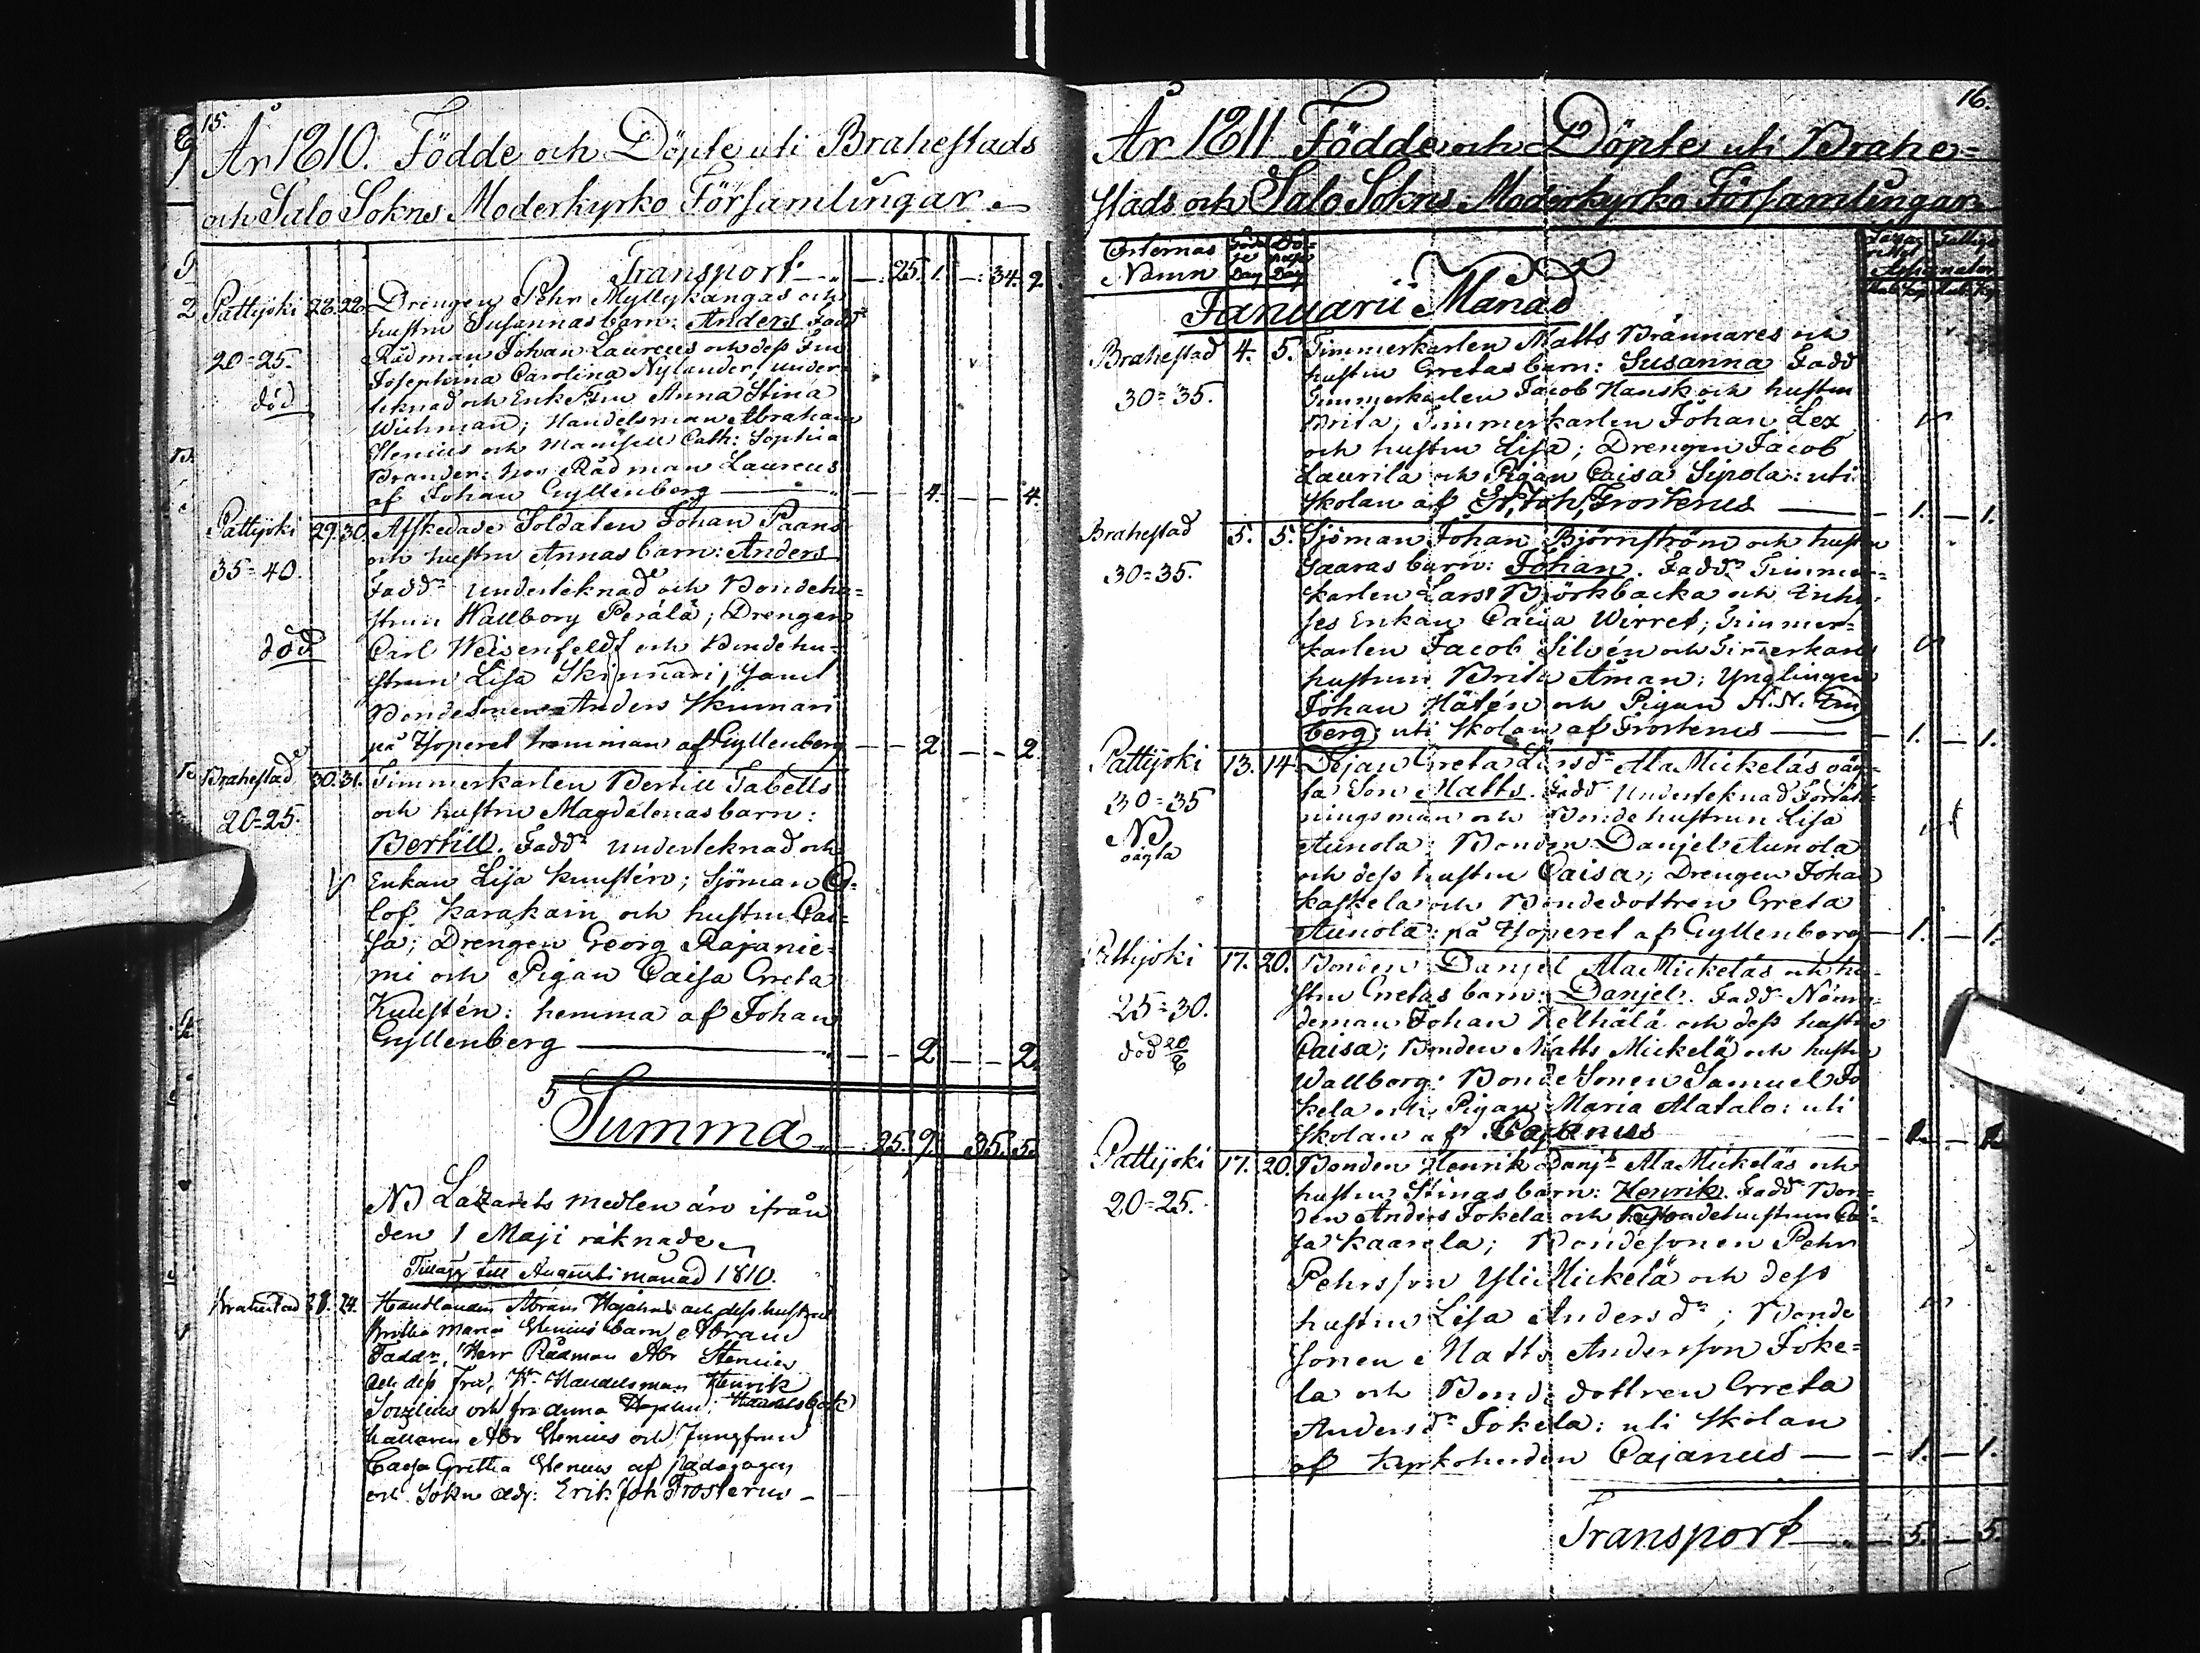 15.
År 1810. Födde och Döpte uti Brahestads
och Salo Sokns Moderkyrko Församlingar.
Transport 25. 1. 34. 2.
Pattijoki 28. 28. Drengen Pehr Myllykangas och
hustru Susannas barn: Anders Fadd
20=25. Rådman Johan Laureus och dess Fru
Josephina Carolina Nylander, under
död teknad och Enkefru Anna Stina
Wichman; Handelsman Abraham
Stenius och Mamsell Cath: Sophia
Brander: hos Rådman Laureus
af Johan Gyllenberg 4. 4.
Pattijoki 29. 30. Afskedade Soldaten Johan Paans
och hustru Annas barn: Anders
35=40. Faddr underteknad och Bondehu=
strun Wallborg Perälä; Drengen
död Carl Weisenfeldt och Bondehu=
strun Lisa Skinnari, samt
Bondesonen Anders Skinnari
på Thoperel hemman af Gyllenberg 2. 2.
Brahestad 30. 31. Timmerkarlen Bertill Tabells
och hustru Magdalenas barn:
20=25. Bertill. Faddr underteknad och
Enkan Lisa Kunstén; Sjöman O=
lof Karakain och hustru Cai=
sa; Drengen Georg Rajanie=
mi och Pigan Caisa Greta
Kunstén: hemma af Johan
Gyllenberg 2. 2.
Summa 25. 9. 35. 5.
NB Lazarets medlen äro ifrån
den 1 Maji räknade
Tillägg till Augusti månad 1810.
Brahestad 24. Handlanden Abram Hajahns och dess hustrus
Britha Maria Stenius barn Abram
Faddr, Herr Rådman Abr Stenius
och dess Fru, Hr Handelsman Henrik
Sovelius och fru Anna Handelsbok
hållaren Abr Stenius och Jungfrun
Caisa Gretha Stenius af Pädagogen
och Sokn adj: Erik Joh Frosterus
16.
År 1811 Födde och Döpte uti Brahe=
stads och Salo Sokns Moderkyrko Församlingar
Orternas Namn
Födel se Dag
Dö= pelse Dag
Januarii Månad
Brahestad 4. 5. Timmerkarlen Matts Brännares och
hustru Gretas barn: Susanna Fadd
30=35. Timmerkarlen Jacob Hansk och hustru
Brita; Timmerkarlen Johan Lex
och hustru Lisa; Drengen Jacob
Laurila och Pigan Caisa Sipola: uti
Skolan af Er. Joh. Frosterus 1. 1.
Brahestad 5. 5. Sjöman Johan Björnström och hustru
30=35. Saaras barn: Johan. Faddr Timmer=
karlen Lars Björkbacka och Enke
Enkan Caisa Wirret; Timmer=
karlen Jacob Silvén och Timerkarls
hustrun Brita Åman; Ynglingen
Johan Hätén och Pigan N. N.
berg: uti Skolan af Frosterus 1. 1.
Pattijoki 13. 14. Dejan Greta Larsdr Ala Mickeläs oäg=
30=35 ta Son Matts. Fadd Underteknad Förrätt=
NB ningsman och Bondehustrun Lisa
oägta Aunola: Bonden Danjel Aunola
och dess hustru Caisa; Drengen Johan
Kaskela och Bondedottren Greta
Aunola: på Thoperel af Gyllenberg 1. 1.
Pattijoki 17. 20. Bonden Danjel Ala Mickeläs och hu=
stru Gretas barn: Danjel. Fadd Nämn=
25=30. deman Johan Kelhälä och dess hustru
död 20/6 Caisa; Bonden Matts Mickelä och hustru
Wallborg: Bonde Sonen Samuel Jo
kela och Pigan Maria Alatalo: uti
Skolan af Cajanus 1. 1.
Pattijoki 17. 20. Bonden Henrik Danjs Ala Mickeläs och
20=25. hustru Stinas barn: Henrik. Faddr Bon=
den Anders Jokela och Bondehustrun Cai=
sa Kaarela; Bondesonen Pehr
Pehrsson Yli Mickelä och dess
hustru Lisa Andersdr; Bonde
sonen Matts Andersson Joke=
la och Bondedottren Greta
Andersdr Jokela: uti Skolan
af Kyrkoherden Cajanus 1. 1.
Transport 5. 5.